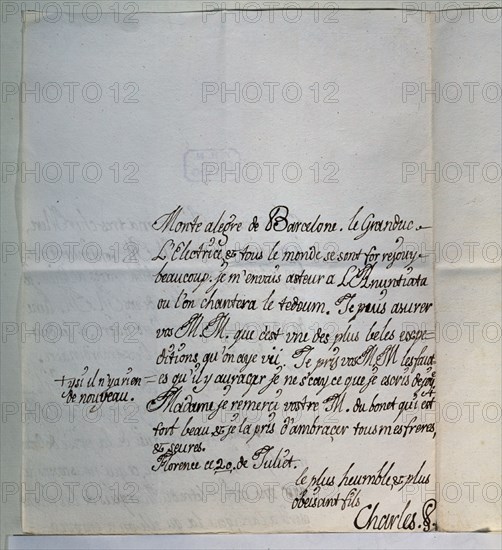 Monte alegre de Barcelone. le Granduc
L'Electrice, et tous le monde se sont for rejouy
beaucoup. je m'envais asteur a L'Anuntiata
ou l'on chantera le tedeum. Je puis asurer
vos M.M. que c'est une des plus beles expe=
ditions, qu'on aye vü. Je pris vos M.M les faut=
es qu'il y aura, car je ne sçay ce que je escris de joye,
+ ysi il n'y a rien
de nouveau.
Madame, je remerci vostre M. du bonet qui est
fort beau et je la pris d'ambraçer tous mes freres,
et seures.
Florence ce 20, de Juliet.
le plus heumble, et plus
obeisant fils
Charles.
PHOTO 12